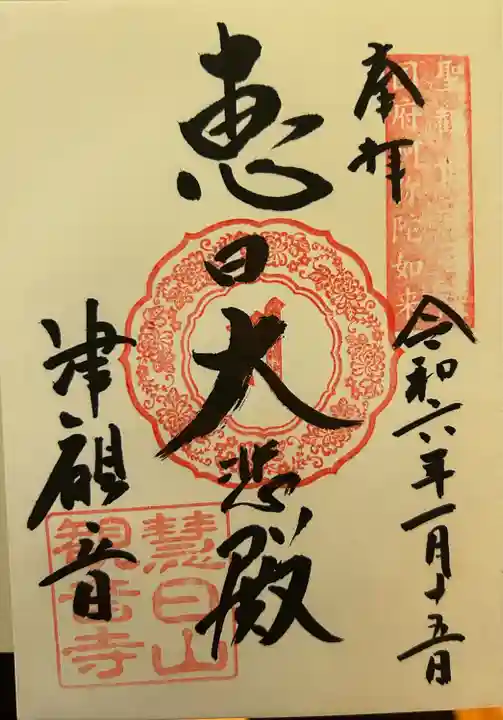 奉拝
令和六年一月十五日
国府阿弥陀如来
恵日大悲殿
津観音
慧日山
観音寺